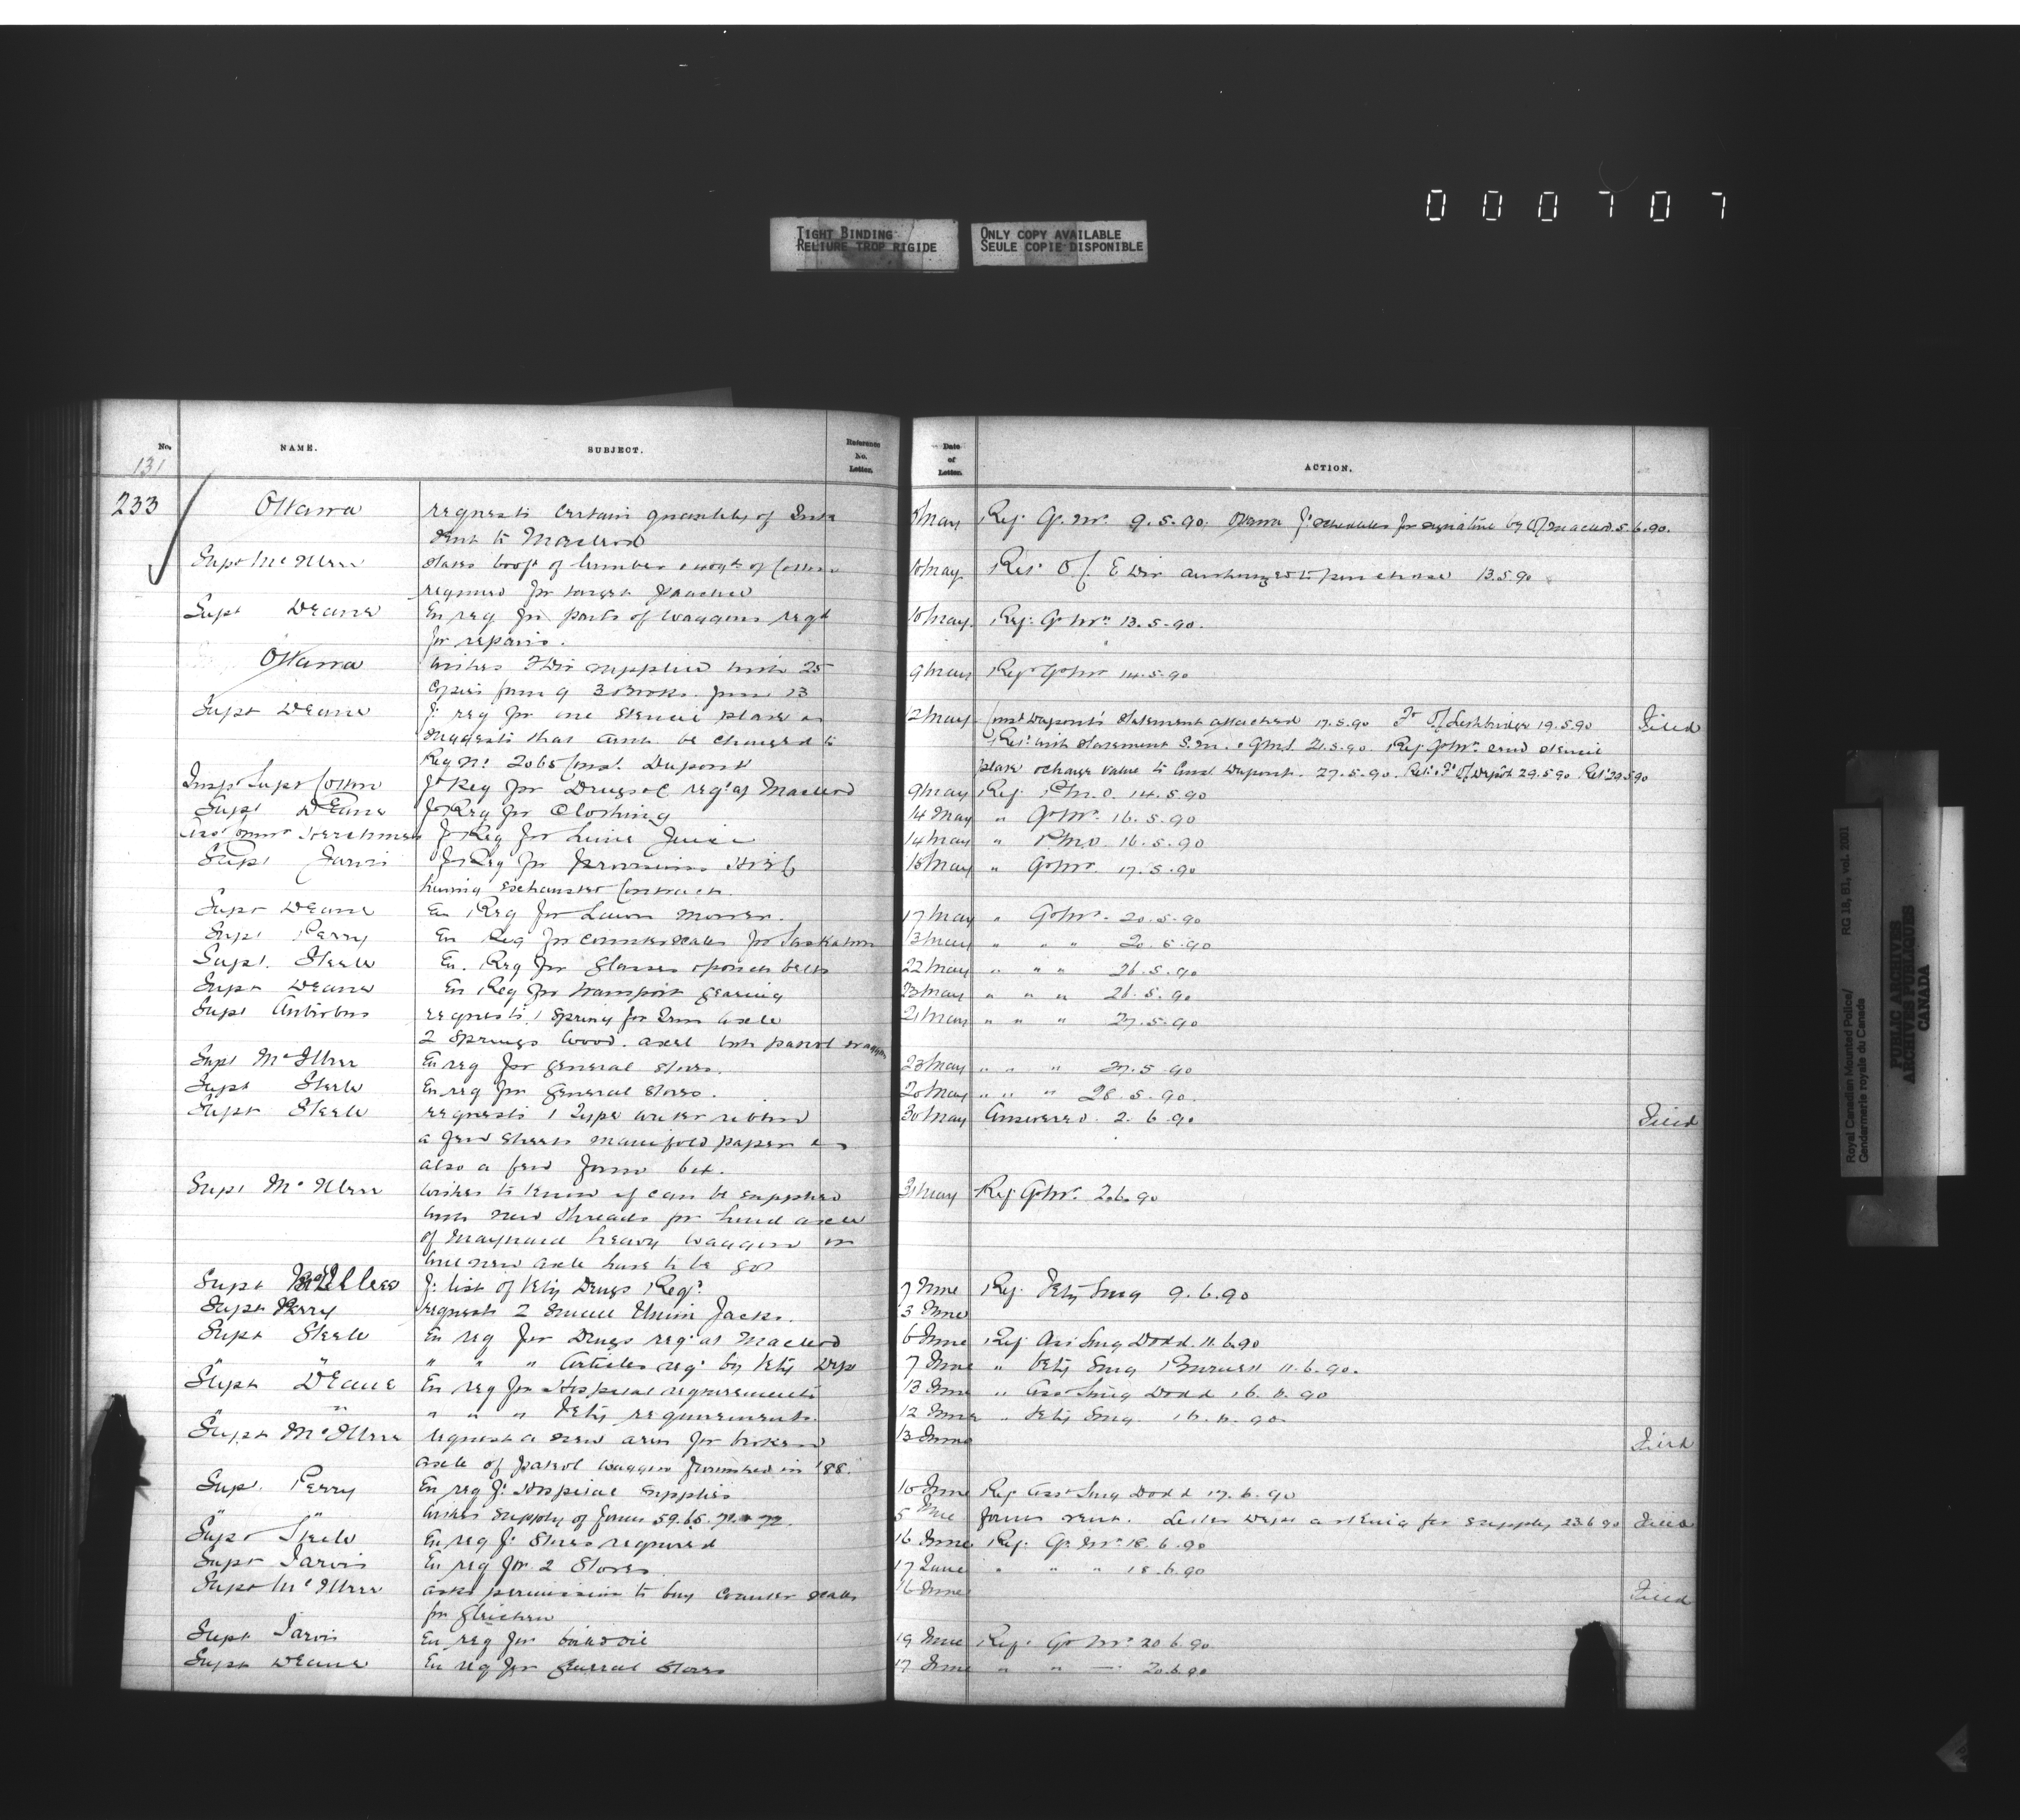 000707
TIGHT BINDING
RELIURE TROP RIGIDE
ONLY COPY AVAILABLE
SEULE COPIE DISPONIBLE
No. NAME. SUBJECT. Reference No. Letter. Date of Letter. ACTION.
131
233 Ottawa requests certain quantity of 8 May Ref. Qr. Mr. 9.5.90. Ottawa schedules for signature by O/C Macleod 5.6.90.
sent to Macleod
Supt McIllree states of lumber of 10 May O/C E Div authorized to purchase 13.5.90
required for target practice
Supt Deane En req for parts of waggons reqd 10 May Ref. Qr Mr 13.5.90.
for repairs.
Ottawa wishes Div supplied with 25 9 May Ref Qr Mr 14.5.90
copies form 9 3 Books form 13
Supt Deane req for one stencil plate 12 May Const Dupont's statement attached 17.5.90 O/C Lethbridge 19.5.90 Filed
suggests that amt be charged to with statement S.M. 21.5.90. Ref Qr Mr send stencil
Reg No. 2065 Const. Dupont plate & charge value to Const Dupont. 27.5.90. O/C Depot 29.5.90 29.5.90
Supt Cotton Req for Drugs &c reqd at Macleod 9 May Ref. P.M.O. 14.5.90
Supt Deane for Req for Clothing 14 May " Qr Mr. 16.5.90
Herchmer for Req for Lime Juice 14 May " P.M.O. 16.5.90
Supt Jarvis for Req for provisions 15 May " Qr Mr. 17.5.90
having exhausted contract.
Supt Deane En Req for Lawn Mower. 17 May " Qr Mr. 20.5.90
Supt Perry En Req for counter scales for Saskatoon 13 May " " " 20.5.90
Supt. Steele En. Req for Glasses 22 May " " " 26.5.90
Supt Deane En Req for transport gearing 23 May " " " 26.5.90
Supt Antrobus requests 1 spring for axle 21 May " " " 27.5.90
2 springs wood. axle patrol waggon
Supt McIllree En req for general stores. 23 May " " " 27.5.90
Supt Steele En req for general stores. 20 May " " " 28.5.90.
Supt Steele requests 1 Type writer ribbon 30 May Answered 2.6.90 Filed
a few sheets manifold paper
also a few form
Supt McIllree wishes to know if can be supplied 31 May Ref. Qr Mr. 2.6.90
with new threads for hind axle
of Maynard heavy waggon or
will new axle have to be got
Supt McIllree list of Vety Drugs Reqd. 7 June Ref. Vety Surg 9.6.90
Supt Perry requests 2 small Union Jacks. 3 June
Supt Steele En req for Drugs reqd at Macleod 6 June Ref. Ass Surg Dodd. 11.6.90
" " " " " Articles reqd by Vety Dept 7 June " Vety Surg Burnett 11.6.90.
Supt Deane En req for Hospital requirements 13 June " Asst Surg Dodd 16.6.90
" " " " Vety requirements. 12 June " Vety Surg. 16.6.90.
Supt McIllree request a new arm for broken 13 June Filed
axle of patrol waggon furnished in '88.
Supt. Perry En req f. Hospital supplies 10 June Ref Asst Surg Dodd 17.6.90
" " wishes supply of forms 59.65.71 & 72. 5 June forms sent. for supply 23.6.90 Filed
Supt Steele En req f. Stores required 16 June Ref. Qr. Mr. 18.6.90
Supt Jarvis En req for 2 Stoves. 17 June " " " 18.6.90
Supt McIllree asks permission to buy counter scales 16 June Filed
for Gleichen
Supt Jarvis En req for 19 June Ref. Qr Mr. 20.6.90
Supt Deane En req for general stores 17 June " " — 20.6.90
Royal Canadian Mounted Police/ RG 18, B1, vol. 2001
Gendarmerie royale du Canada
PUBLIC ARCHIVES
ARCHIVES PUBLIQUES
CANADA